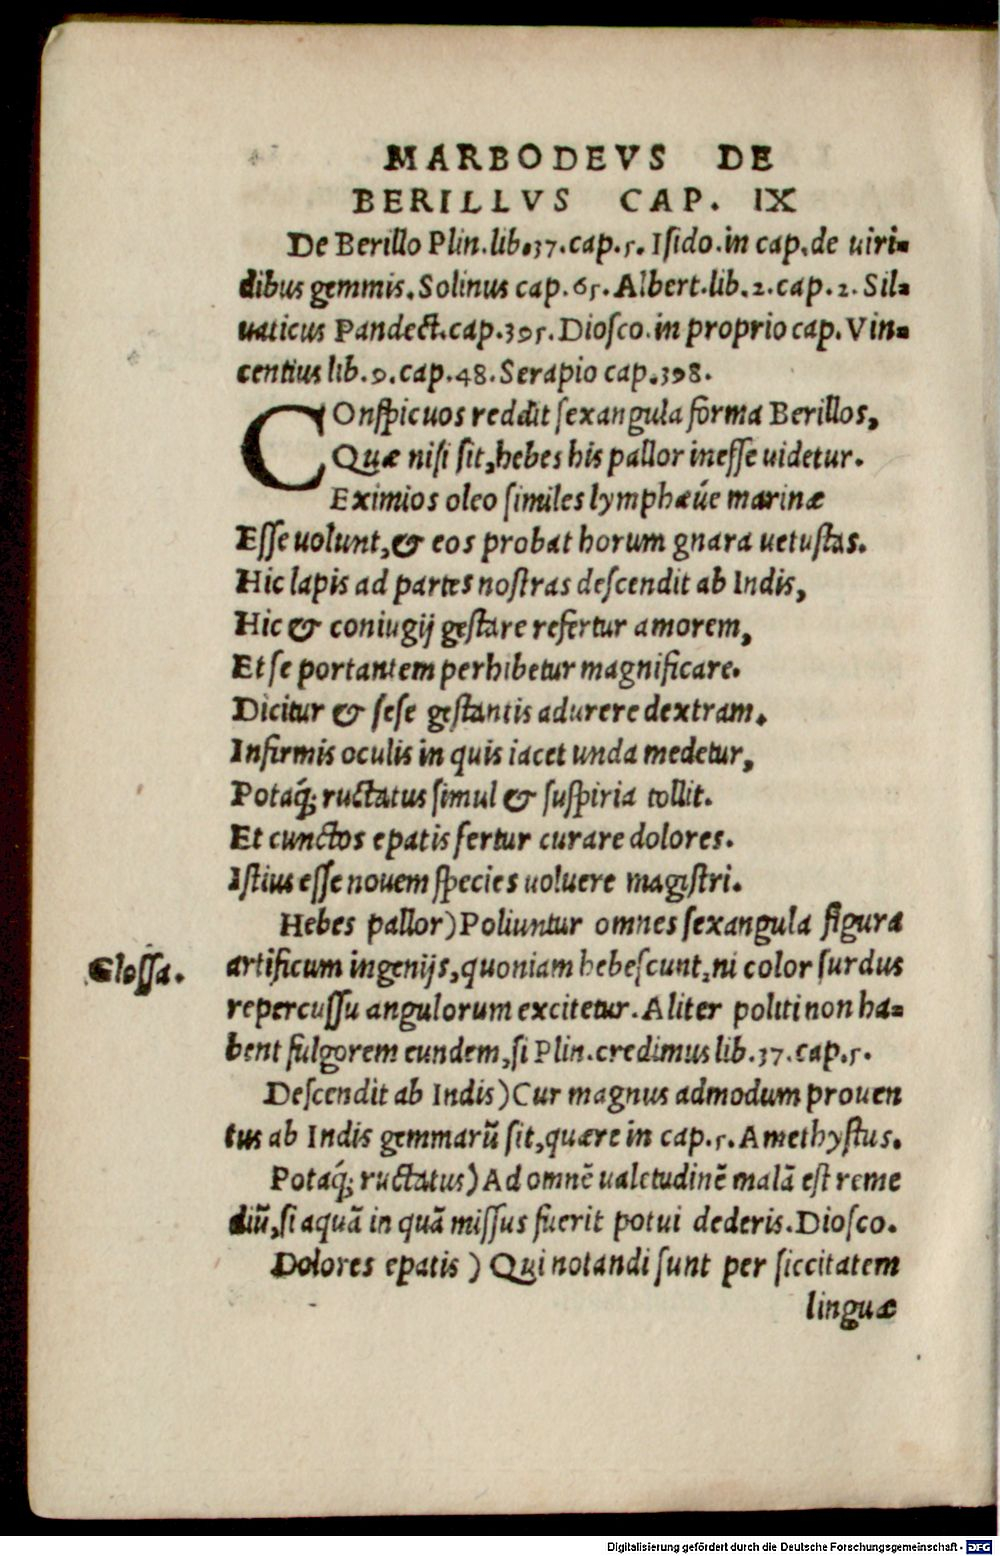 MARBODEVS DE
BERILLVS CAP. IX
De Berillo Plin.lib.37.cap.5. Iſido.in cap.de uiri-
dibus gemmis. Solinus cap.65. Albert.lib.2.cap.2. Sil-
uaticus Pandect.cap.395. Dioſco.in proprio cap. Vin-
centius lib.9.cap.48. Serapio cap.398.
COnſpicuos reddit ſexangula forma Berillos,
Quæ niſi ſit, hebes his pallor ineſſe uidetur.
Eximios oleo ſimiles lymphæúe marinæ
Eſſe uolunt, & eos probat horum gnara uetuſtas.
Hic lapis ad partes noſtras deſcendit ab Indis,
Hic & coniugij geſtare refertur amorem,
Et ſe portantem perhibetur magnificare.
Dicitur & ſeſe geſtantis adurere dextram.
Infirmis oculis in quis iacet unda medetur,
Potaq́; ructatus ſimul & ſuſpiria tollit.
Et cunctos epatis fertur curare dolores.
Iſtius eſſe nouem ſpecies uoluere magiſtri.
Hebes pallor) Poliuntur omnes ſexangula figura
Gloſſa. artificum ingenijs, quoniam hebeſcunt, ni color ſurdus
repercuſſu angulorum excitetur. Aliter politi non ha-
bent fulgorem eundem, ſi Plin.credimus lib.37.cap.5.
Deſcendit ab Indis) Cur magnus admodum prouen
tus ab Indis gemmarũ ſit, quære in cap.5. Amethyſtus.
Potaq́; ructatus) Ad omnẽ ualetudinẽ malã eſt reme
diũ, ſi aquã in quã miſſus fuerit potui dederis. Dioſco.
Dolores epatis) Qui notandi ſunt per ſiccitatem
linguæ
Digitalisierung gefördert durch die Deutsche Forschungsgemeinschaft - DFG